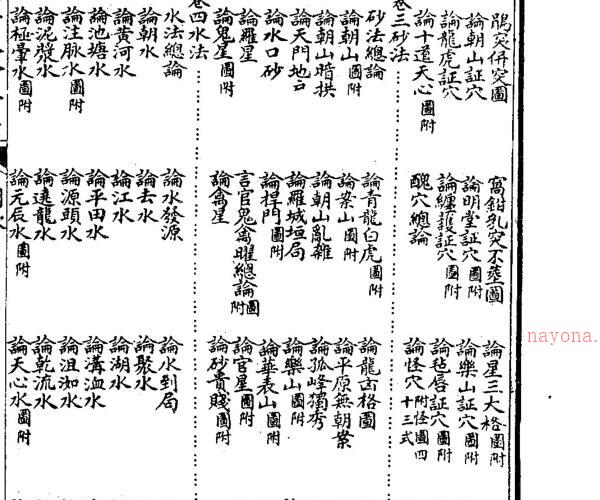 鶻突併突圖
窩鉗乳突不葬圖
論星三大格圖附
論朝山証穴
論明堂証穴圖附
論樂山証穴圖附
論龍虎証穴
論纏護証穴圖附
論毡唇証穴圖附
論十道天心圖附
醜穴總論
論怪穴附怪圖四十三式
卷三砂法
砂法總論
論青龍白虎圖附
論龍虎格圖
論朝山圖附
論案山圖附
論平原無朝案
論朝山暗拱
論朝山亂雜
論孤峰獨秀
論天門地戶
論羅城垣局
論樂山圖附
論水口砂
論捍門圖附
論華表山圖附
論羅星
言官鬼禽曜總論圖附
論官星圖附
論鬼星圖附
論禽星
論砂貴賤圖附
卷四水法
水法總論
論水發源
論水到局
論朝水
論去水
論聚水
論黃河水
論江水
論湖水
論池塘水
論平田水
論溝洫水
論注脉水圖附
論源頭水
論沮洳水
論泥漿水
論遠龍水
論乾流水
論極暈水圖附
論元辰水圖附
論天心水圖附
nayona.